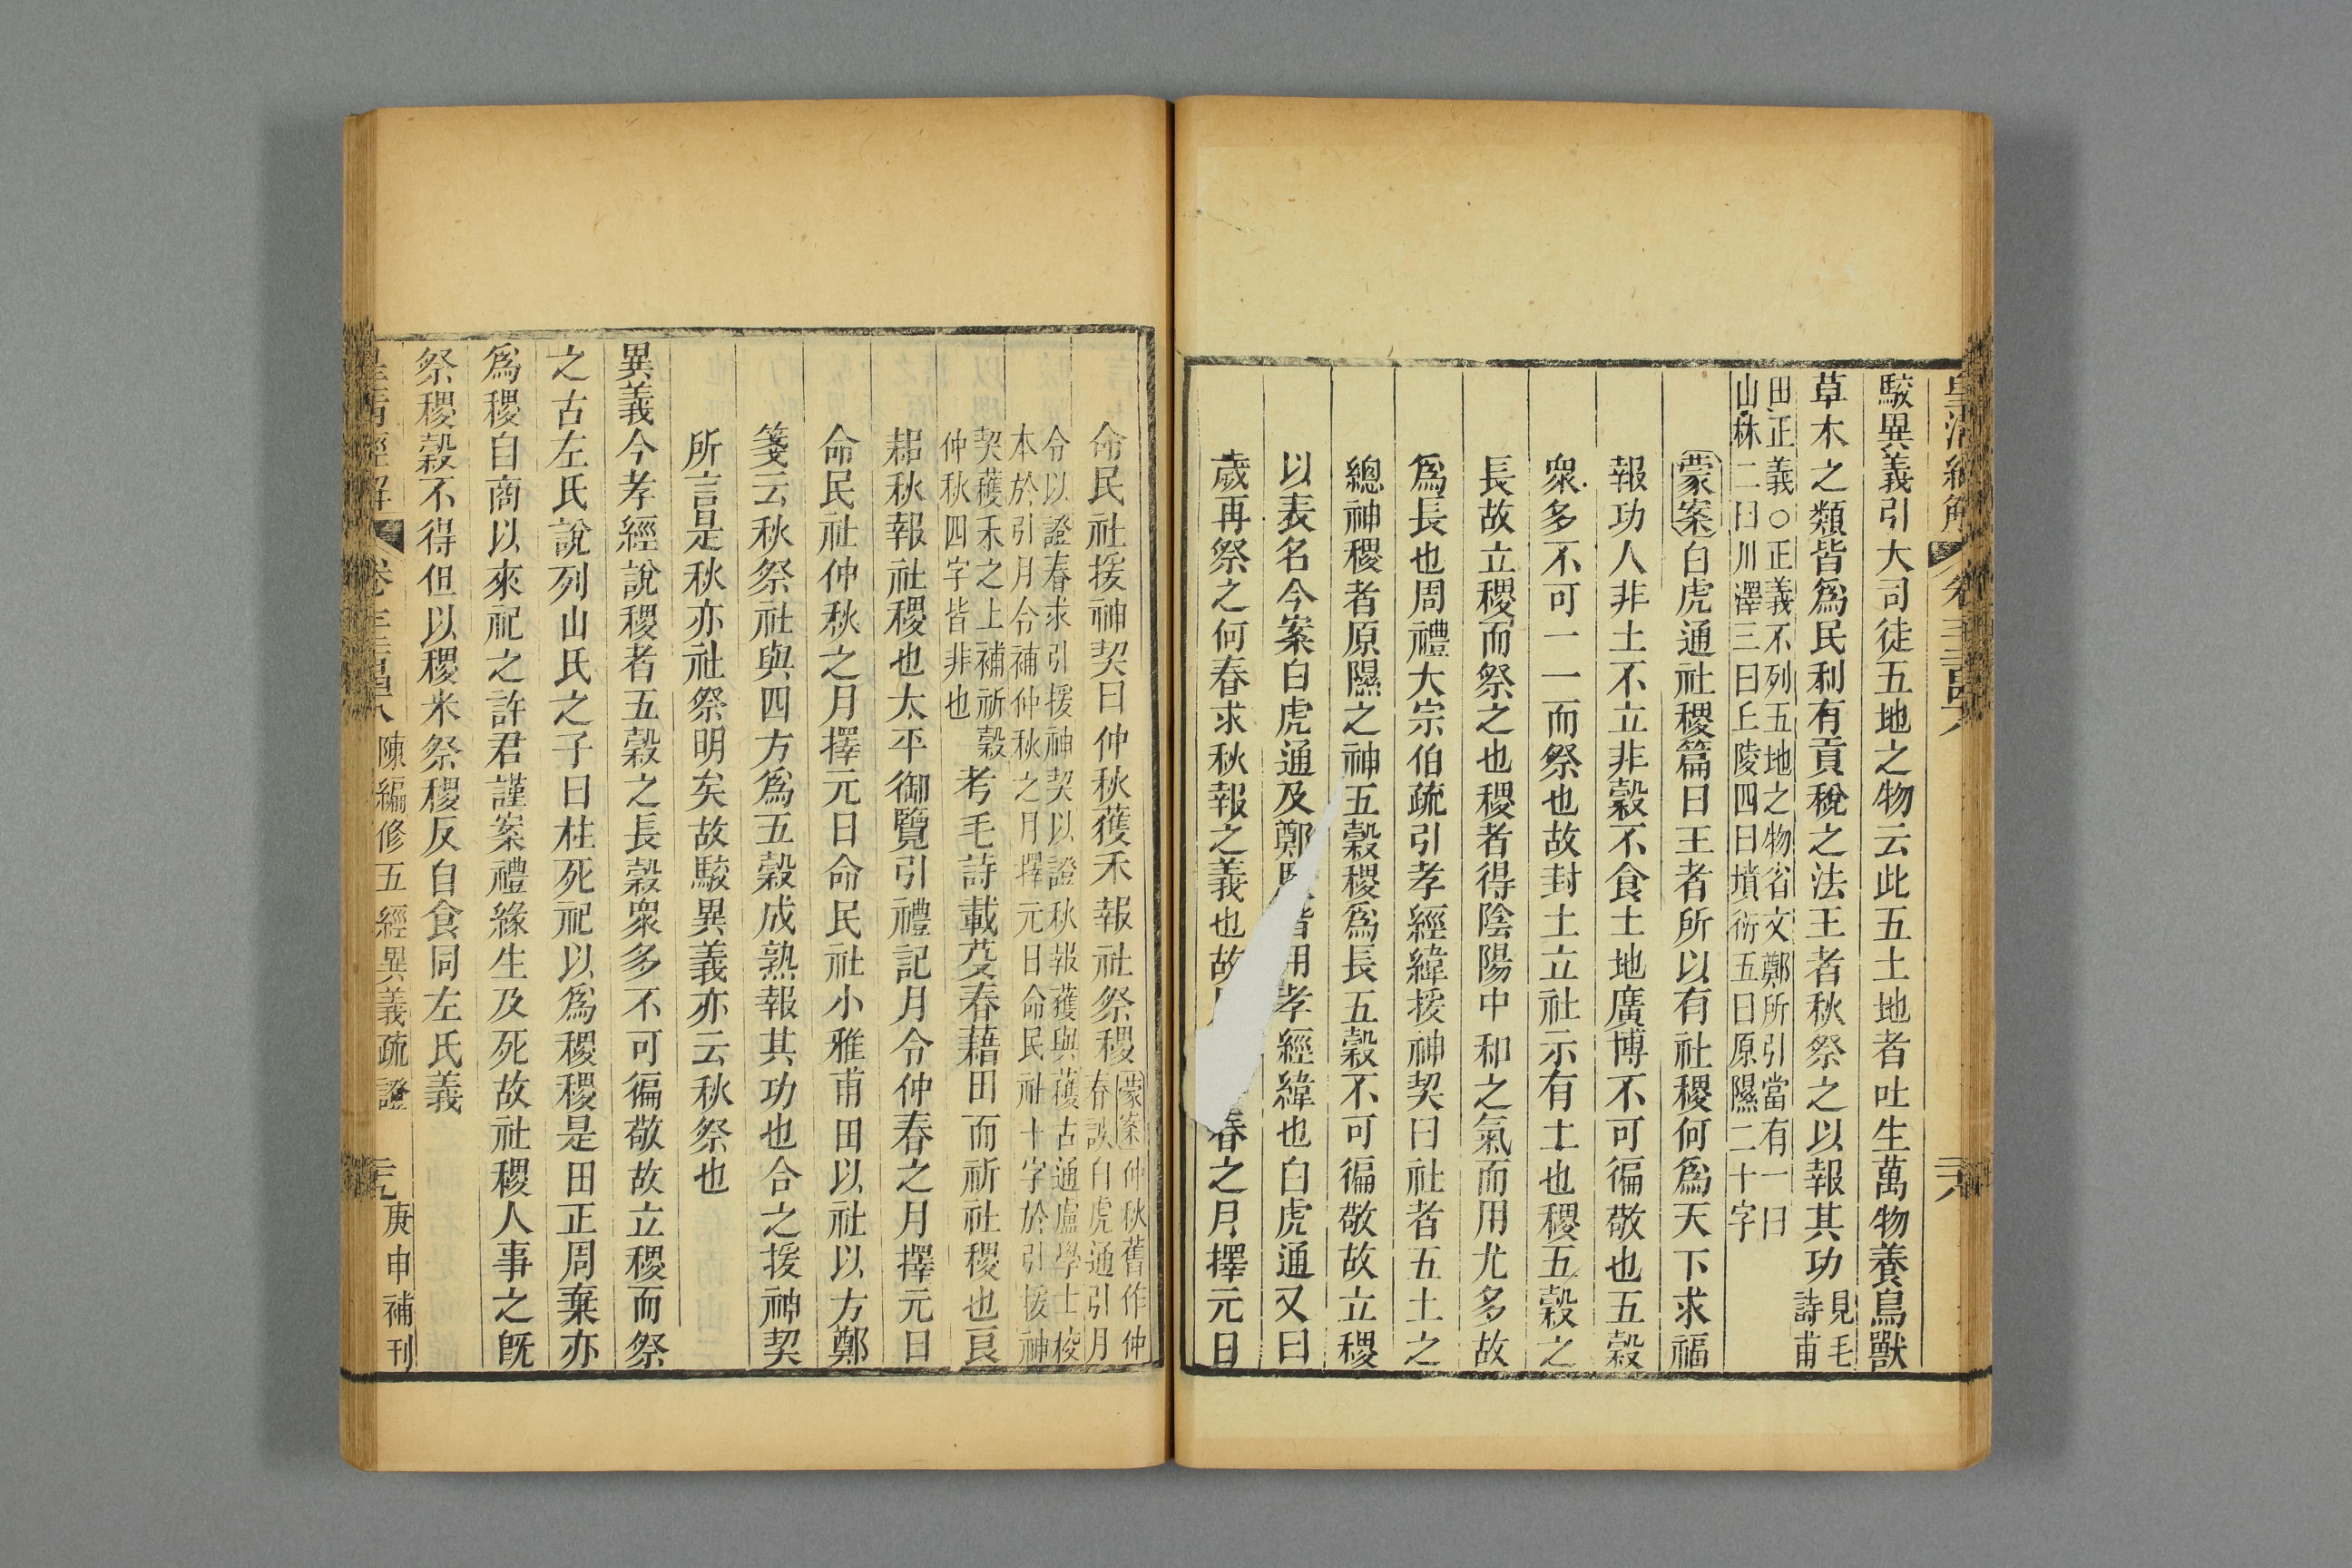 皇清經解 卷千二百四十八 二十八
駮異義引大司徒五地之物云此五土地者吐生萬物養鳥獸
草木之類皆爲民利有貢稅之法王者秋祭之以報其功見毛詩甫
田正義○正義不列五地之物省文鄭所引當有一曰
山林二曰川澤三曰丘陵四曰墳衍五曰原隰二十字
蒙案白虎通社稷篇曰王者所以有社稷何爲天下求福
報功人非土不立非穀不食土地廣博不可徧敬也五穀
衆多不可一一而祭也故封土立社示有土也稷五穀之
長故立稷而祭之也稷者得陰陽中和之氣而用尤多故
爲長也周禮大宗伯疏引孝經緯援神契曰社者五土之
總神稷者原隰之神五穀稷爲長五穀不可徧敬故立稷
以表名今案白虎通及鄭皆用孝經緯也白虎通又曰
歲再祭之何春求秋報之義也故春之月擇元日
命民社援神契曰仲秋獲禾報社祭稷蒙案仲秋舊作仲
春誤白虎通引月
令以證春求引援神契以證秋報獲與穫古通盧學士校
本於引月令補仲秋之月擇元日命民社十字於引援神
契穫禾之上補祈穀
仲秋四字皆非也
考毛詩載芟春藉田而祈社稷也良
耜秋報社稷也太平御覽引禮記月令仲春之月擇元日
命民社仲秋之月擇元日命民社小雅甫田以社以方鄭
箋云秋祭社與四方爲五穀成熟報其功也合之援神契
所言是秋亦社祭明矣故駮異義亦云秋祭也
異義今孝經說稷者五穀之長穀衆多不可徧敬故立稷而祭
之古左氏說列山氏之子曰柱死祀以爲稷稷是田正周棄亦
爲稷自商以來祀之許君謹案禮緣生及死故社稷人事之旣
祭稷穀不得但以稷米祭稷反自食同左氏義
皇清經解 卷千二百四十八 陳編修五經異義疏證 二十九 庚申補刊